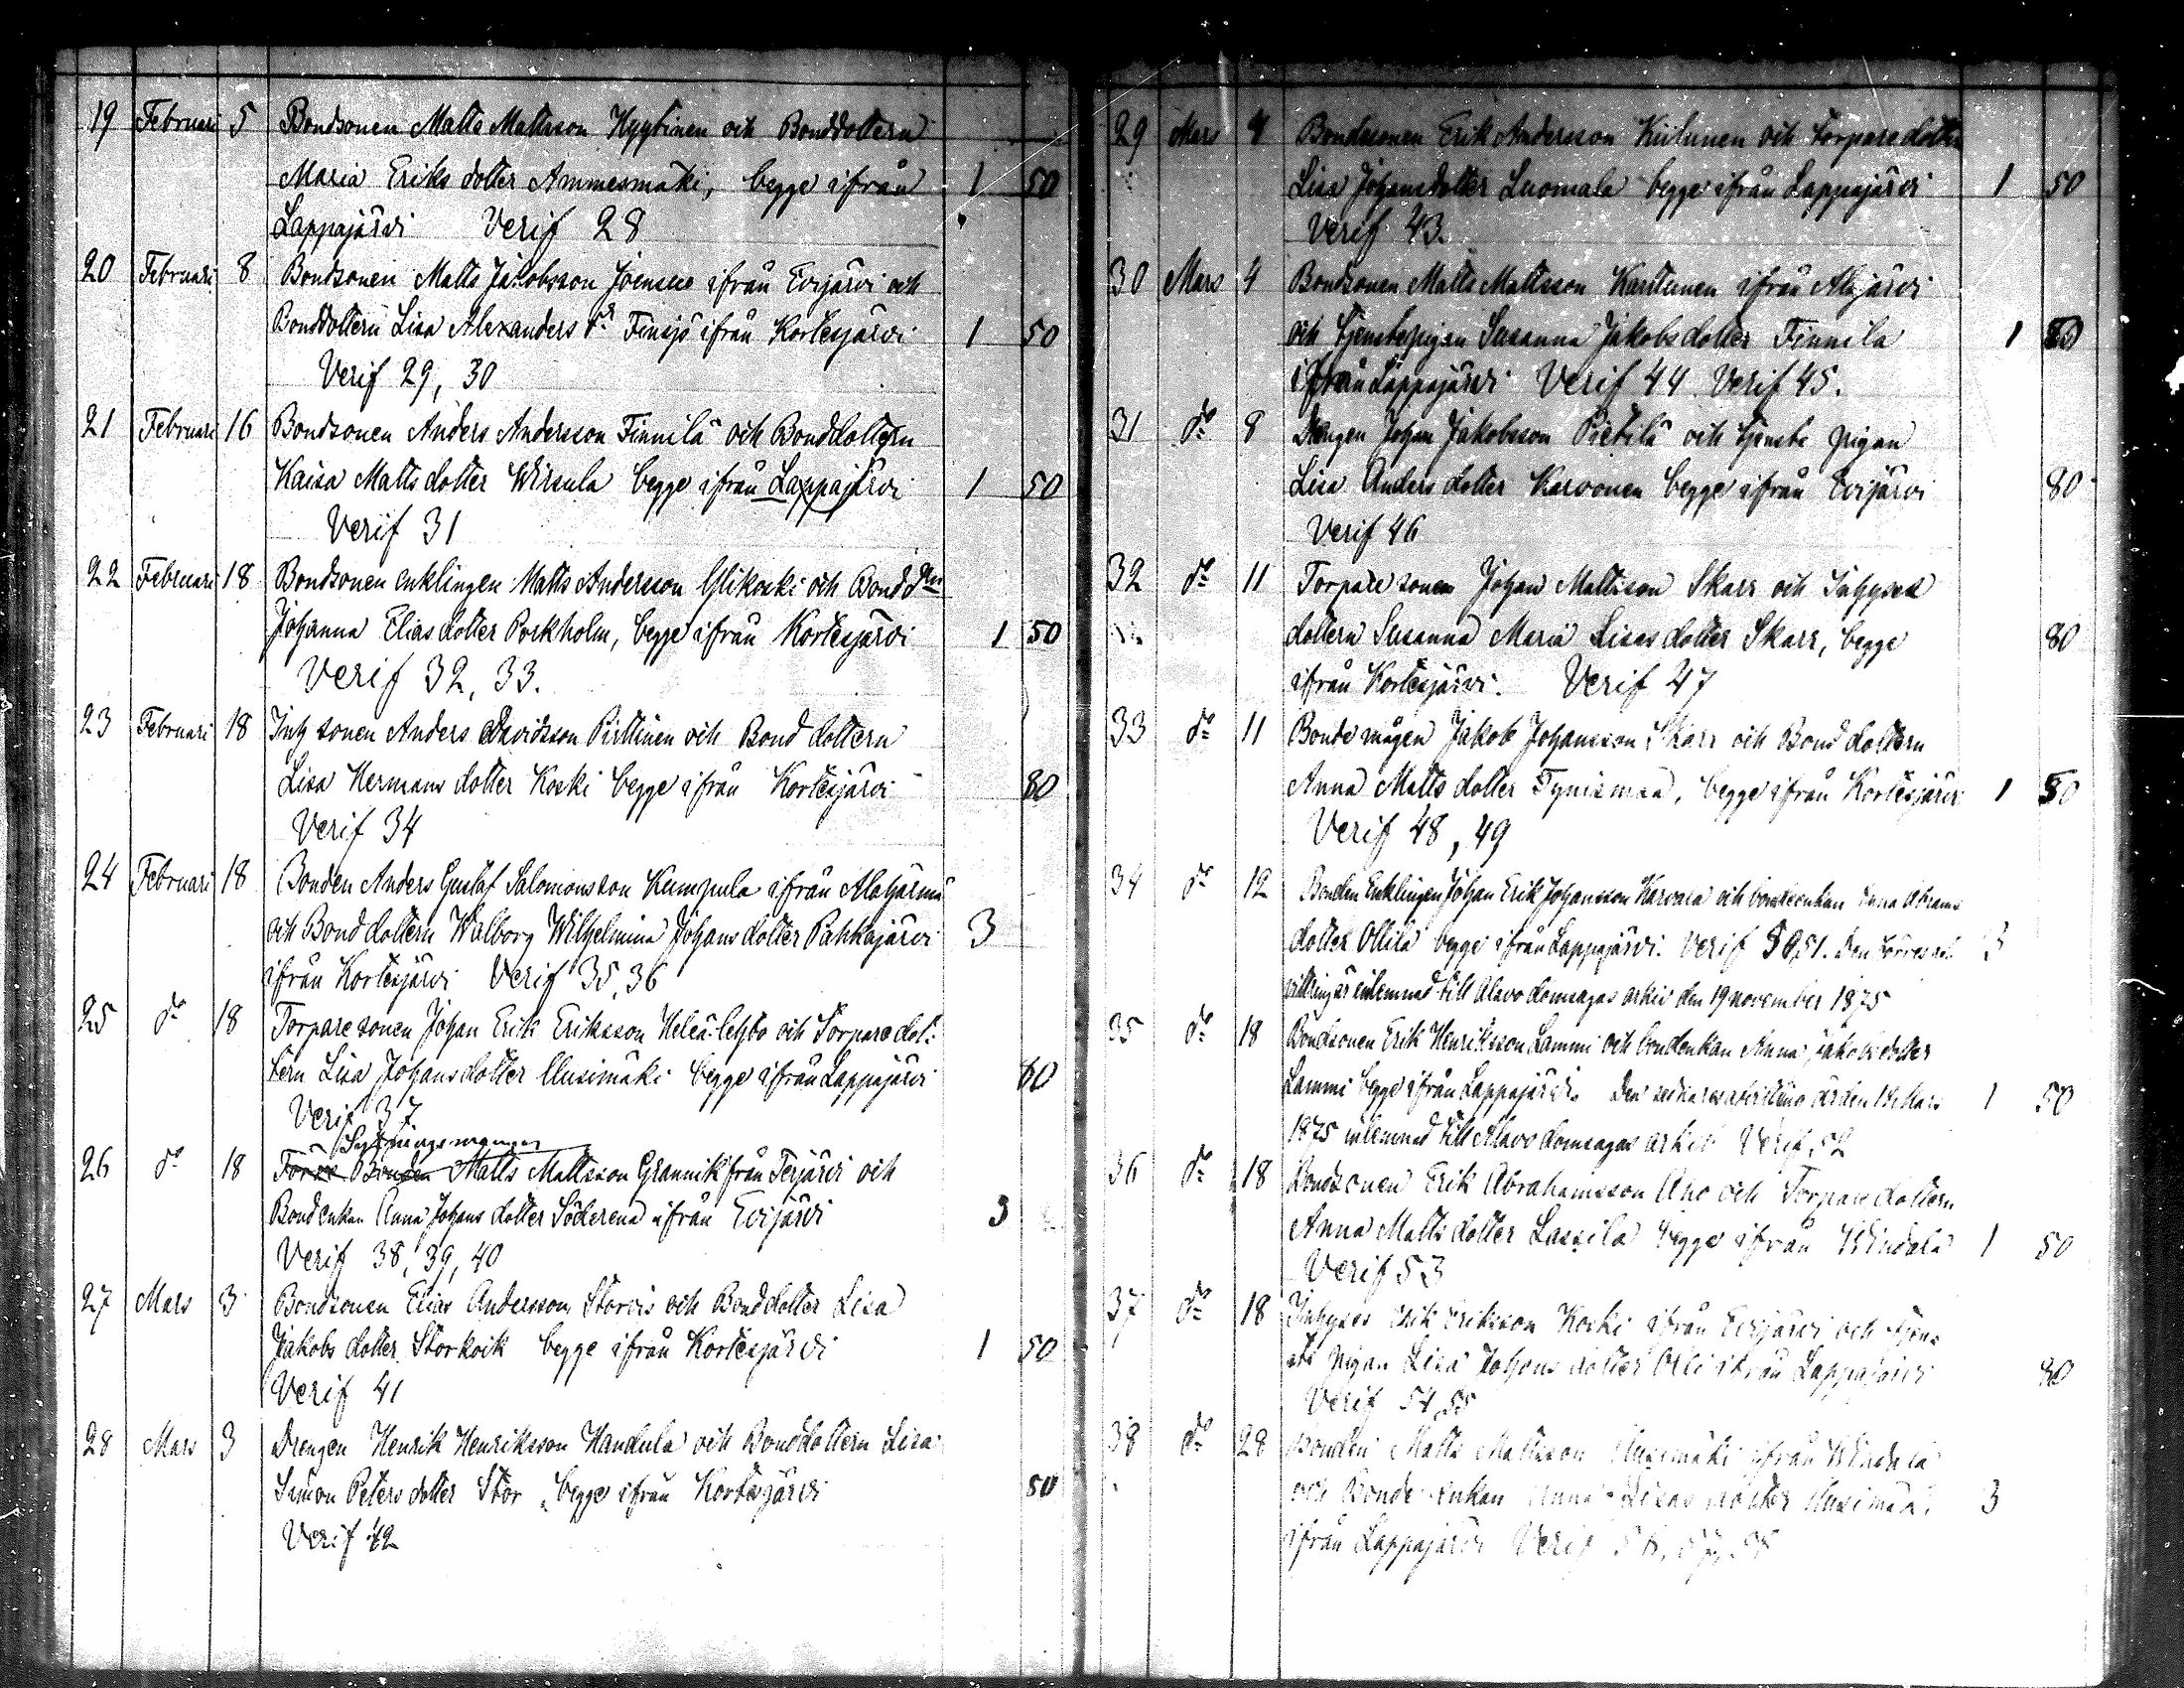 19 Februari 5 Bondsonen Matts Mattsson Hyytinen och Bonddottern
Maria Eriks dotter Ammesmäki, begge ifrån 1 50
Lappajärvi Verif 28
20 Februari 8 Bondsonen Matts Jakobsson Joensuu ifrån Evijärvi och
Bonddottern Lisa Alexanders dr Finsjö ifrån Kortesjärvi 1 50
Verif 29, 30
21 Februari 16 Bondsonen Anders Andersson Finnilä och Bonddottern
Kaisa Matts dotter Wirsula begge ifrån Lappajärvi 1 50
Verif 31
22 Februari 18 Bondsonen enklingen Matts Andersson Ylikoski och Bond drn
Johanna Elias dotter Porkholm, begge ifrån Kortesjärvi 1 50
Verif 32, 33.
23 Februari 18 Inh sonen Anders Davidsson Pirttinen och Bond dottern
Lisa Hermans dotter Koski begge ifrån Kortesjärvi 80
Verif 34
24 Februari 18 Bonden Anders Gustaf Salomonsson Kumpula ifrån Alahärmä
och Bond dottern Walborg Wilhelmina Johans dotter Pahkajärvi 3
ifrån Kortesjärvi Verif 35, 36
25 do 18 Torpare sonen Johan Erik Eriksson och Torpare dot-
tern Lisa Johans dotter Uusimäki begge ifrån Lappajärvi 80
Verif 37.
26 do 18 Förre Bonden Matts Mattsson Grannik från Terjärvi och
Bondenkan Anna Johans dotter Söderena ifrån Evijärvi 3
Verif 38, 39, 40
27 Mars 3 Bondsonen Elias Andersson Storvis och Bonddotter Lisa
Jakobs dotter Storkoik begge ifrån Kortesjärvi 1 50
Verif 41
28 Mars 3 Drengen Henrik Henriksson Handula och Bonddottern Lisa
Simon Peters dotter Stor, begge ifrån Kortesjärvi 80
Verif 42
29 Mars 4 Bondsonen Erik Andersson Kiilunen och Torpare dotter
Lisa Johans dotter Luomala begge ifrån Lappajärvi 1 50
Verif 43.
30 Mars 4 Bondsonen Matts Mattsson Karttunen ifrån Alajärvi
och tjenstepigan Susanna Jakobs dotter Finnila 1
ifrån Lappajärvi Verif 44 Verif 45.
31 do 8 Drengen Johan Jakobsson Pietilä och tjenste pigan
Lisa Anders dotter Karvonen begge ifrån Evijärvi 80
Verif 46
32 do 11 Torpare sonen Johan Mattsson Skarr och Inhyses
dottern Susanna Maria Lisas dotter Skarr, begge 80
ifrån Kortesjärvi. Verif 47
33 do 11 Bonde mågen Jakob Johansson Skarr och Bond dottern
Anna Matts dotter Tynismaa, begge ifrån Kortesjärvi 1 50
Verif 48, 49
34 do 12 Bonden Enklingen Johan Erik Johansson Karvala och bondeenkan Anna Abrams
dotter Ollila begge ifrån Lappajärvi. Verif 50, 51. Den förres 3
är inlemnad till Alavo domsagas arkiv den 19 november 1875
35 do 18 Bondsonen Erik Henriksson Lammi och bondenkan Anna Jakobs dotter
Lammi begge ifrån Lappajärvi. Den är den 18 Mars 1 50
1875 inlemnad till Alavo domsagas arkiv Verif. 52
36 do 18 Bondsonen Erik Abrahamsson Aho och Torpare dottern
Anna Matts dotter Lassila begge ifrån Windala 1 50
Verif 53
37 do 18 Inhyses Erik Eriksson Koski ifrån Evijärvi och tjen-
ste pigan Lisa Johans dotter Olli ifrån Lappajärvi 80
Verif 54, 55
38 do 28 Bonden Matts Mattsson Uusimäki ifrån Windala
och Bonde enkan Anna Lisas dotter Uusimäki 3
ifrån Lappajärvi Verif 56, 57, 58